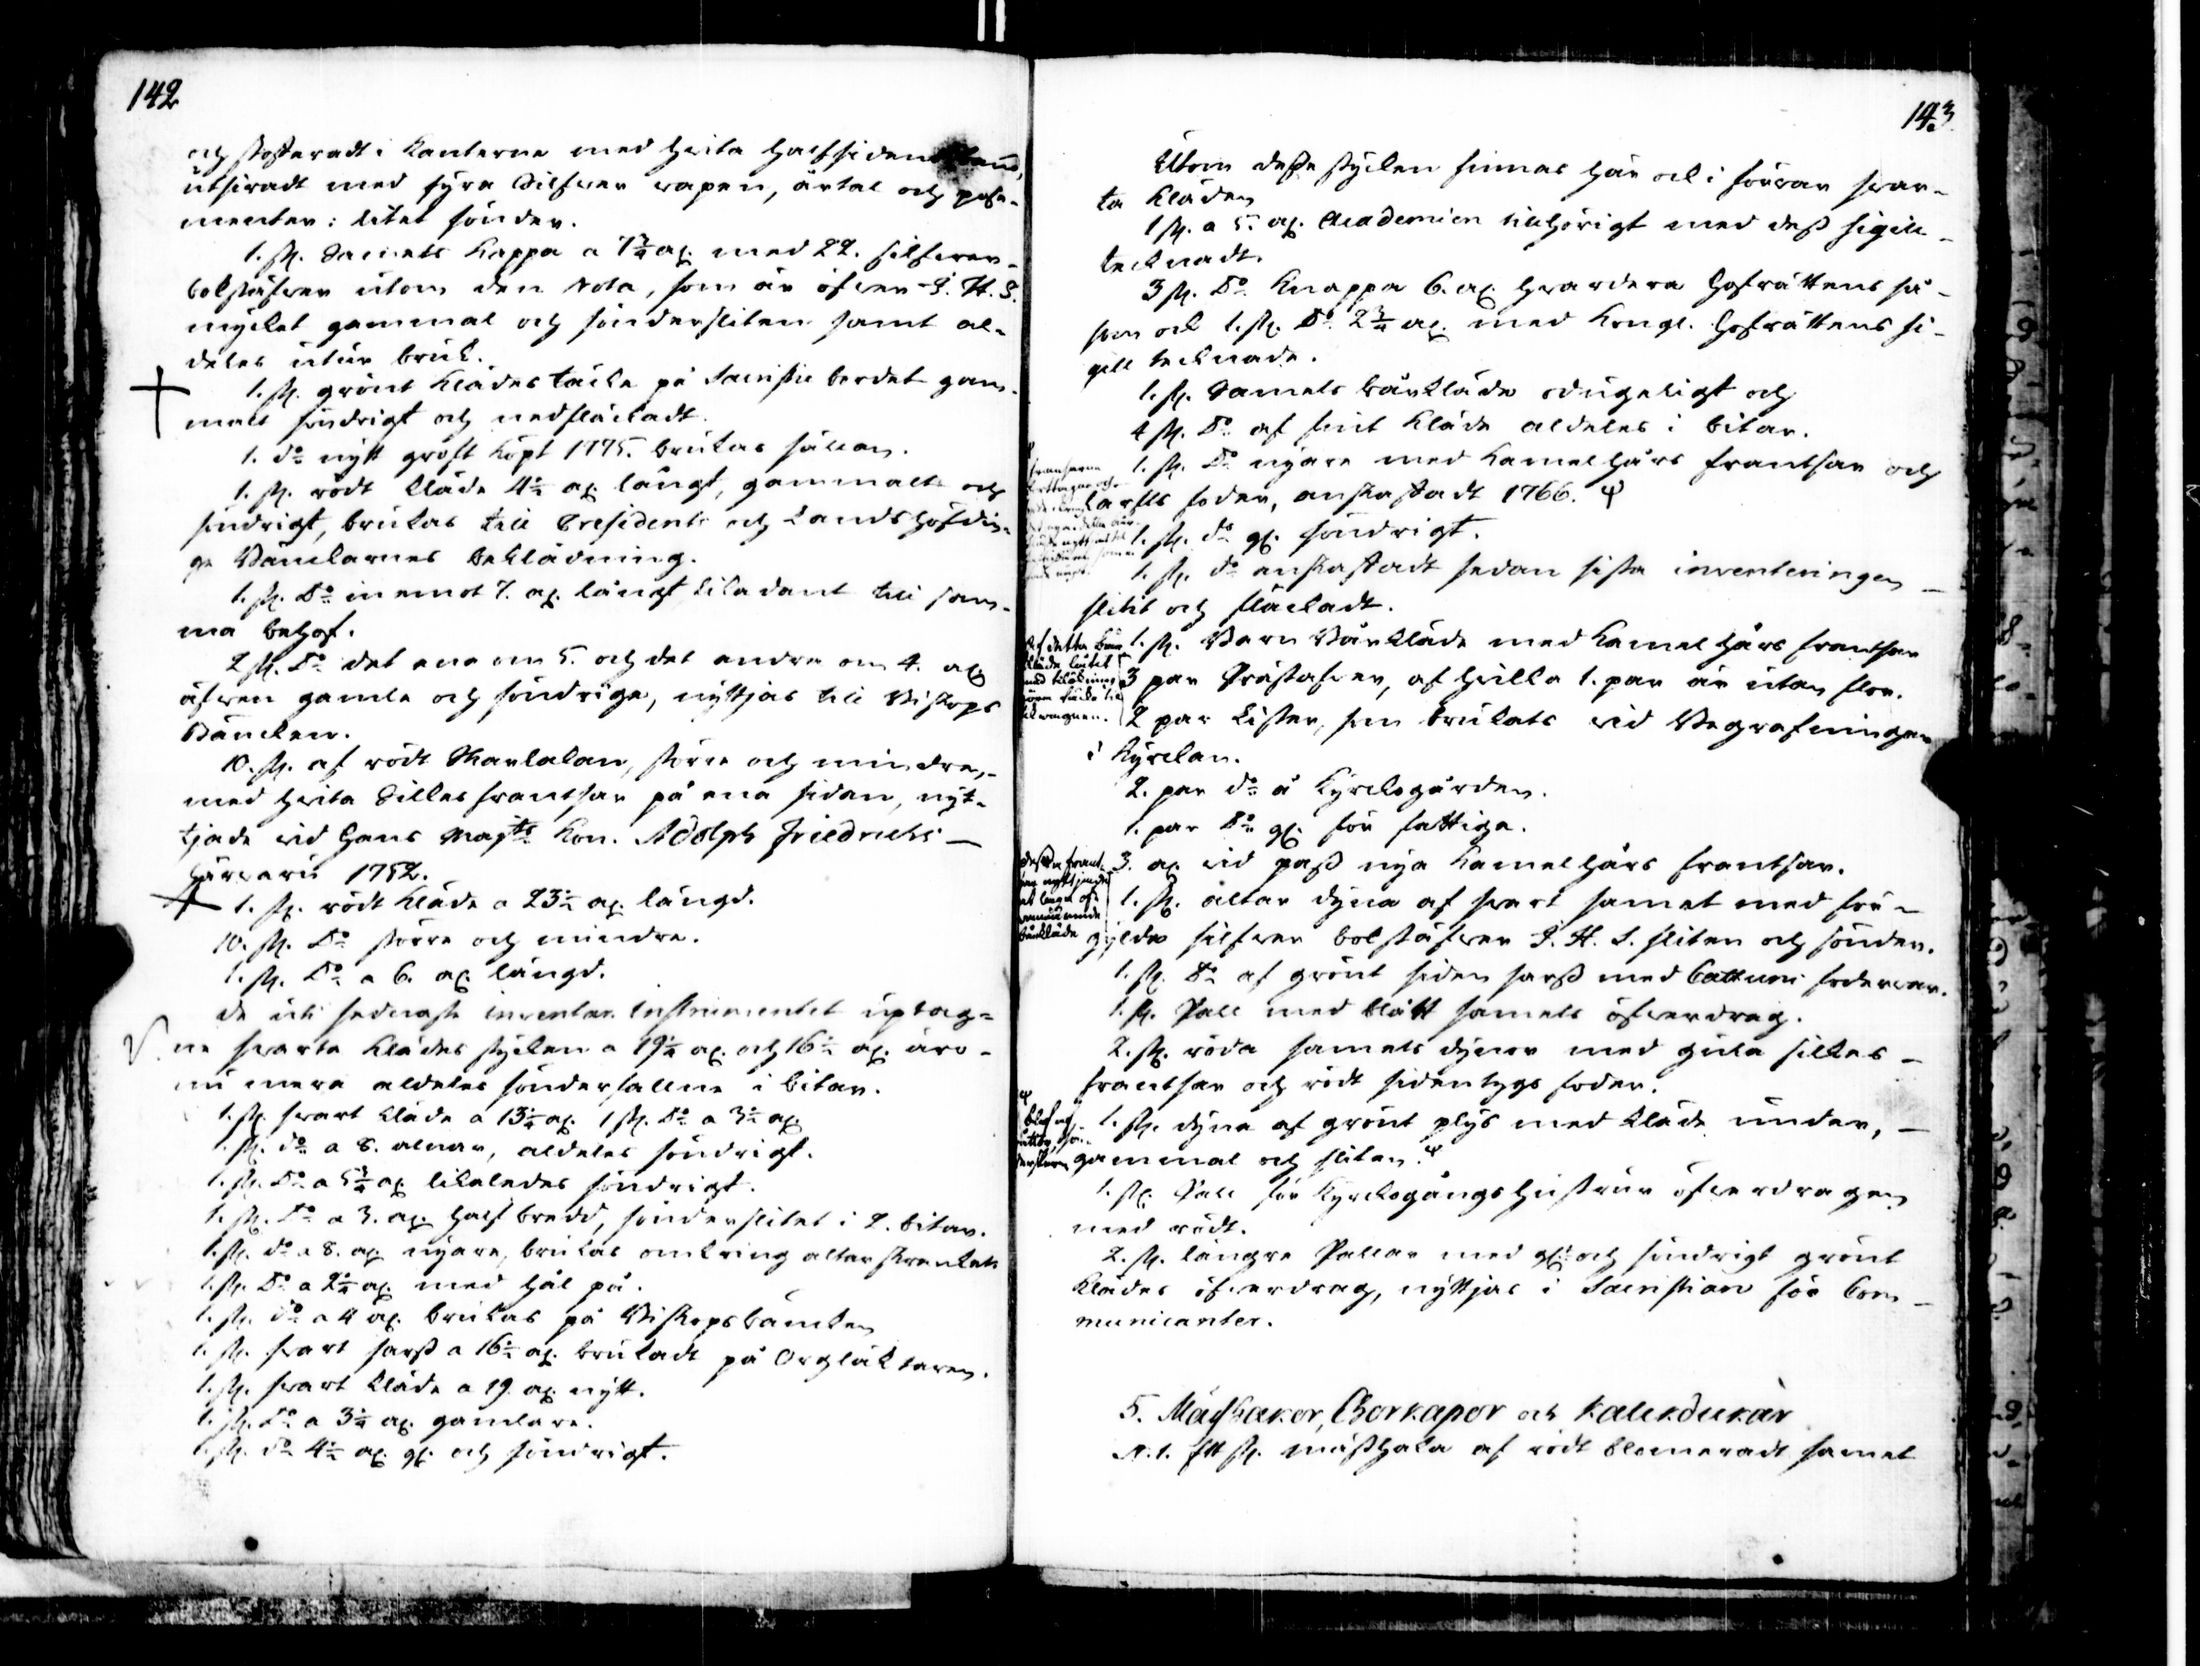 142
och stofferadt i Kanterne med hvita halfsidens band,
utsiradt med fyra Silfver wapen, årtal och posse-
menter: litet sönder.
1. st. Samets Kappa a 7 3/4 al. med 22. silfver-
bokstäfver utom den Nota, som är öfver J. H. S.
mycket gammal och söndersliten samt al-
deles utur bruk.
1. st. grönt Klädes täcke på Sacristie bordet gam-
malt söndrigt och nedfläckadt.
1. do nytt gröft köpt 1775. brukas sällan.
1. st. rödt Kläde 4 1/2 al. långt, gammalt och
söndrigt, brukas till Presidents och Landshöfdin-
ge Bänckarnes beklädning.
1. st. Do inemot 7. al. långt likadant till sam-
ma behof.
2 st. Do det ena om 5. och det andra om 4. al.
äfven gamla och söndriga, nyttjas till Biskops
Bäncken.
10. st. af rödt Marlakan, större och mindre,
med hvita Silkes frantsar på ena sidan, nyt-
tjade vid Hans Majts Kon. Adolph Friedrichs
härvaru 1752.
1. st. rödt Kläde a 23 1/2 al. längd.
10. st. Do större och mindre.
1. st. Do a 6. al. längd.
De uti sednaste inventar. Instrumentet uptag-
ne svarta Klädes stycken a 19 1/4 al. och 16 1/2 al. äro
nu mera aldeles sönderfallne i bitar.
1. st. svart Kläde a 13 1/4 al. 1 st. Do a 3 1/2 al.
1. st. do a 8. alnar, aldeles söndrigt.
1. st. Do a 5 3/4 al. likaledes söndrigt.
1. st. Do a 3. al. half bredd, sönderslitet i 2. bitar.
1. st. do a 8. al. nyare, brukas omkring altar skranket
1. st. Do a 2 1/2 al. med hål på.
1. st. do a 4 al. brukas på Biskopsbäncken
1. st. svart sars a 16 1/2 al. brukadt på Orgläktaren.
1. st. svart Kläde a 19. al. nytt.
1. st. Do a 3 1/4 al. gamlare.
1. st. do 4 1/2 al. gl. och söndrigt.
143.
Utom dessa stycken finnas här ock i förvar svar-
ta Kläden
1 st. a 5. al. Academien tillhörigt med dess sigill
tecknadt.
3 st. Do Knappa 6. al. hvardera Hofrättens så-
som ock 1. st. Do 2 3/4 al. med Kongl. Hofrättens si-
gill tecknade.
1. st. Samets bårkläde odugeligt och
4 st. Do af fint Kläde aldeles i bitar.
1. st. Do nyare med Kamelhårs frantsar och
Lärfts foder, anskaffadt 1766. Ψ
1. st. do gl. söndrigt.
1. st. do anskaffadt sedan sista inventeringen
slitit och fläckadt.
Af detta bår
kläde
1. st. Barn Bårkläde med Kamelhårs frantsar
3 par Prästafver, af hvilka 1. par är utan flor.
2 par Lister, som brukats vid Begrafningar
i Kyrckan.
2. par do å Kyrckogården.
1. par Do gl. för fattiga.
Dessa frant-
sar nyttjade
3. al. vid pass nya Kamelhårs frantsar.
1. st. altar dyna af svart samet med för-
gyldta silfver bokstäfver J. H. S. sliten och sönder.
1. st. Do af grönt siden sars med Cattuns foder var.
1. st. Pall med blått samets öfverdrag.
2. st. röda samets dynor med gula silkes
frantsar och rödt sidentygs foder.
1. st. dyna af grönt plys med Kläde under,
gammal och sliten. Ψ
1. st. Pall för Kyrckogångs hustrur öfverdragen
med rödt.
2. st. längre Pallar med gl. och söndrigt grönt
Klädes öfverdrag, nyttjas i Sacristian för Com-
municanter.
5. Mässhakor, Chorkapor och Kalckdukar
N. 1. Ett st. mässhaka af rödt blommeradt samet